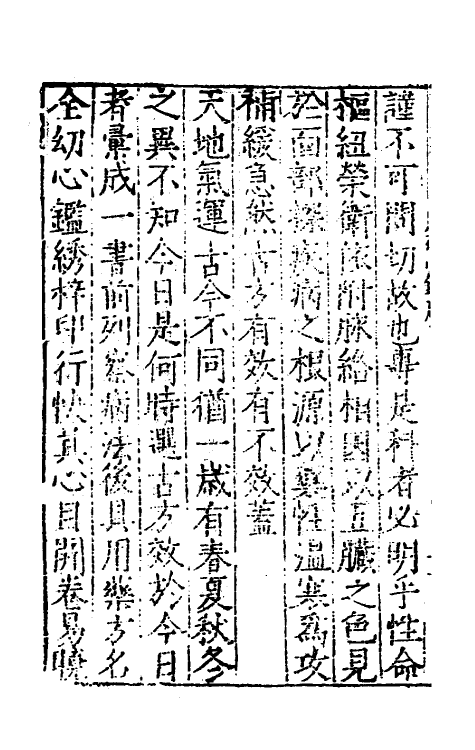 謹不可問切故也專是科者必明乎性命
樞紐榮衛依附脉絡相因以五臟之色見
於面部探疾病之根源以藥性溫寒為攻
補緩急然古方有效有不效蓋
天地氣運古今不同猶一歲有春夏秋冬
之異不知今日是何時選古方效於今日
者彙成一書前列察病法後具用藥方名
全幼心鑑綉梓印行快其心目開卷易曉